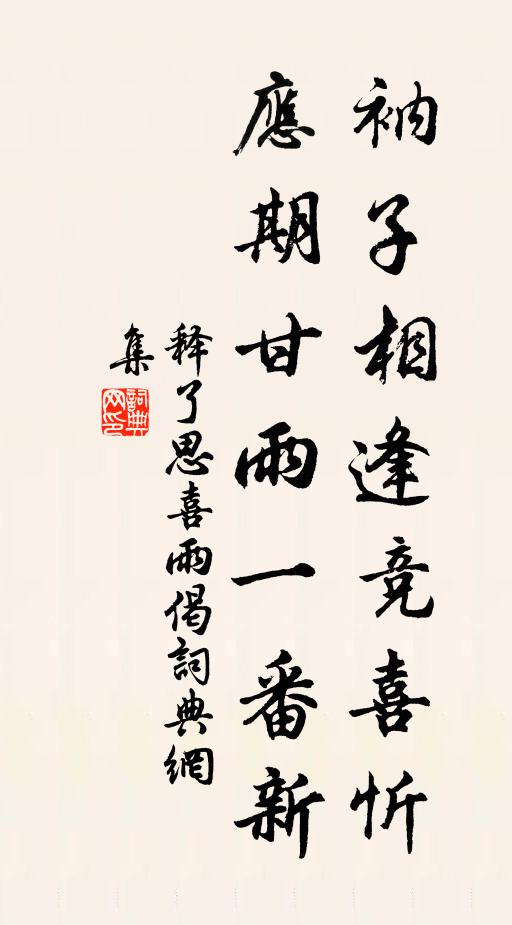 衲子相逢竞喜忻
應期甘雨一番新
释了思喜雨偈詞典網
集
詞典网印